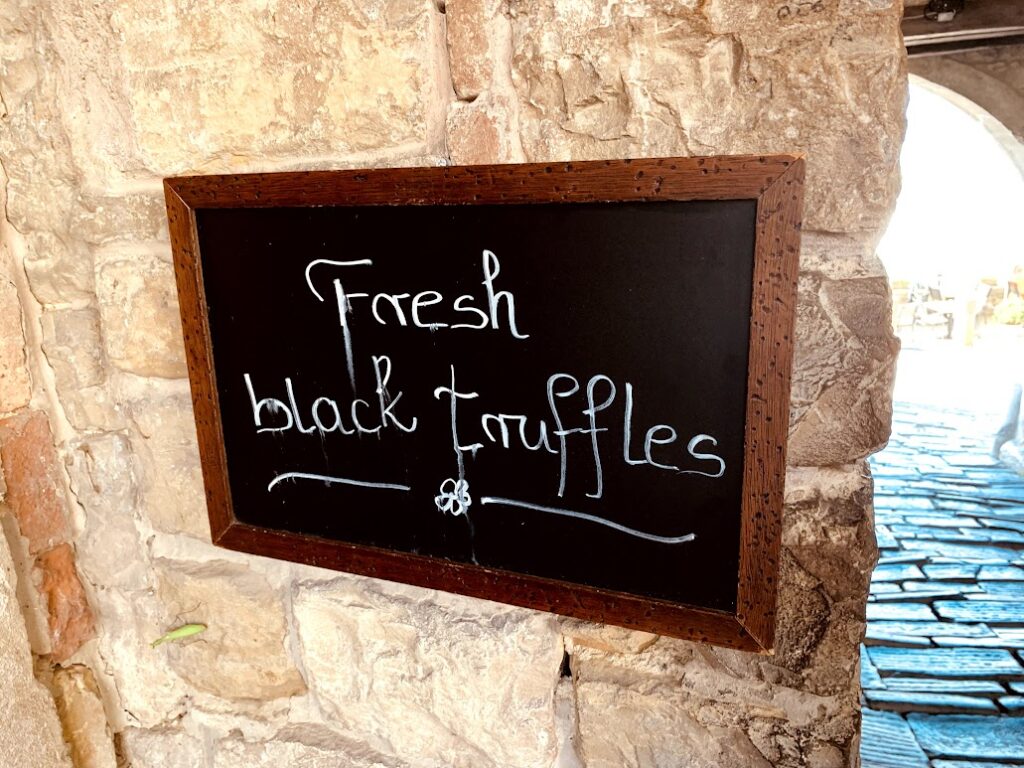 Fresh
black truffles